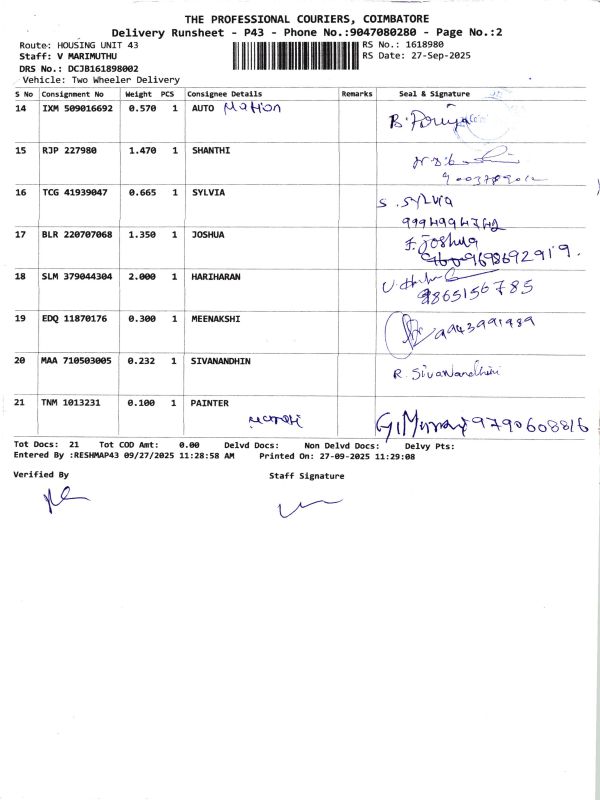 THE PROFESSIONAL COURIERS, COIMBATORE
Delivery Runsheet - P43 - Phone No.:9047080280 - Page No.:2
Route: HOUSING UNIT 43
RS No.: 1618980
Staff: V MARIMUTHU
RS Date: 27-Sep-2025
DRS No.: DCJB161898002
Vehicle: Two Wheeler Delivery
S No Consignment No Weight PCS Consignee Details Remarks Seal & Signature
14 IXM 509016692 0.570 1 AUTO Mation
B. Priya
15 RJP 227980 1.470 1 SHANTHI
16 TCG 41939047 0.665 1 SYLVIA S. SYLVIA
9994994742
17 BLR 220707068 1.350 1 JOSHUA J. Joshua
9698692919.
18 SLM 379044304 2.000 1 HARIHARAN
9865156785
19 EDQ 11870176 0.300 1 MEENAKSHI 9943991989
20 MAA 710503005 0.232 1 SIVANANDHIN R. Sivanandhini
21 TNM 1013231 0.100 1 PAINTER
9790608816
Tot Docs: 21 Tot COD Amt: 0.00 Delvd Docs: Non Delvd Docs: Delvy Pts:
Entered By :RESHMAP43 09/27/2025 11:28:58 AM Printed On: 27-09-2025 11:29:08
Verified By Staff Signature